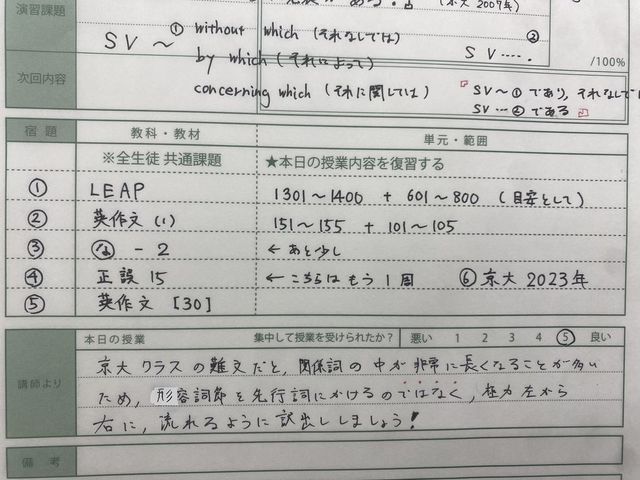 演習課題
(京大 2007年)
SV ～ ① without which (それなしでは) ② SV …..
by which (それによって)
/100%
次回内容
concerning which (それに関しては)
SV～①であり, それなしでは
SV…②である
宿題 教科・教材 単元・範囲
※全生徒 共通課題 ★本日の授業内容を復習する
① LEAP 1301～1400 + 601～800 (目安として)
② 英作文 (1) 151～155 + 101～105
③ な - 2 ← あと少し
④ 正誤 15 ← こちらはもう 1周 ⑥ 京大 2023年
⑤ 英作文 [30]
本日の授業 集中して授業を受けられたか? 悪い 1 2 3 4 ⑤ 良い
講師より
京大クラスの難文だと, 関係詞の中が非常に長くなることが多い
ため, 形容詞節を先行詞にかけるのではなく, 極力左から
右に, 流れるように訳出ししましょう!
備考